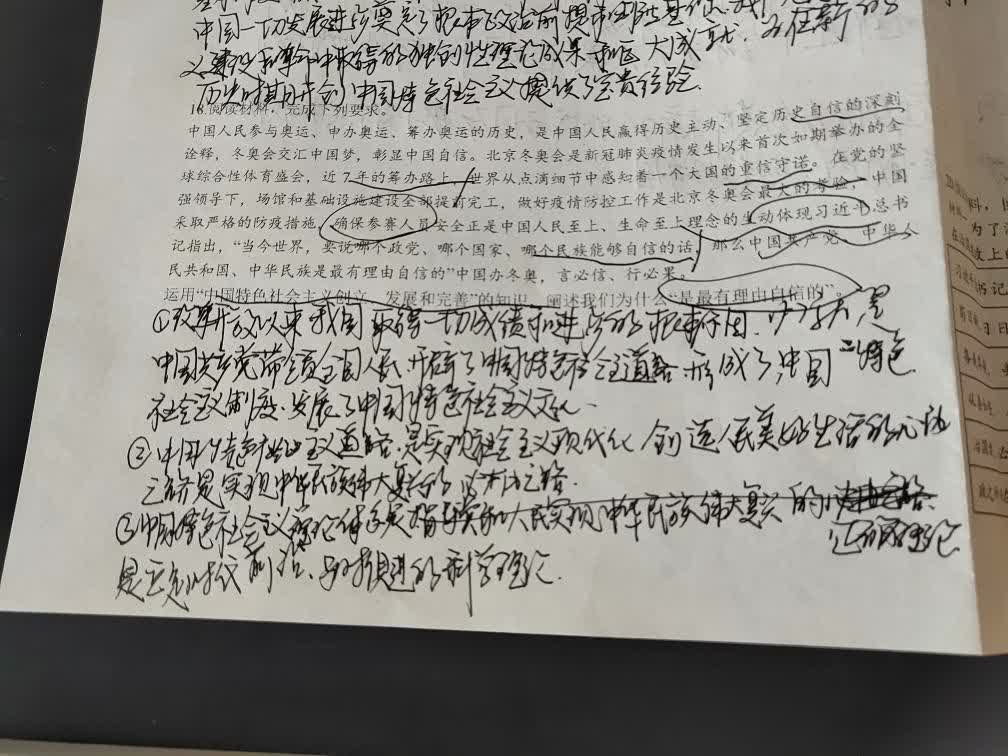 中国一切发展进步奠定了根本政治前提和制度基础
义建设 中取得的独创性理论成果和巨大成就，为在新的
历史时期开创中国特色社会主义提供了宝贵经验
16.阅读材料，完成下列要求。
中国人民参与奥运、申办奥运、筹办奥运的历史，是中国人民赢得历史主动、坚定历史自信的深刻
诠释，冬奥会交汇中国梦，彰显中国自信。北京冬奥会是新冠肺炎疫情发生以来首次如期举办的全
球综合性体育盛会，近7年的筹办路上，世界从点滴细节中感知着一个大国的重信守诺。在党的坚
强领导下，场馆和基础设施建设全部提前完工，做好疫情防控工作是北京冬奥会最大的考验，中国
采取严格的防疫措施，确保参赛人员安全正是中国人民至上、生命至上理念的生动体现习近平总书
记指出，“当今世界，要说哪个政党、哪个国家、哪个民族能够自信的话，那么中国共产党、中华人
民共和国、中华民族是最有理由自信的”中国办冬奥，言必信、行必果。
运用“中国特色社会主义创立、发展和完善”的知识，阐述我们为什么“是最有理由自信的”
①改革开放以来我国取得一切成绩和进步的根本原因，归结为是
中国共产党带领全国人民，开辟了中国特色社会主义道路，形成了中国特色
社会主义制度，发展了中国特色社会主义文化
②中国特色社会主义道路，是实现社会主义现代化 创造人民美好生活的必由
之路是实现中华民族伟大复兴的必由之路
③中国特色社会主义理论体系是指导党和人民实现中华民族伟大复兴的
正确理论
是立于时代前沿、与时俱进的科学理论.